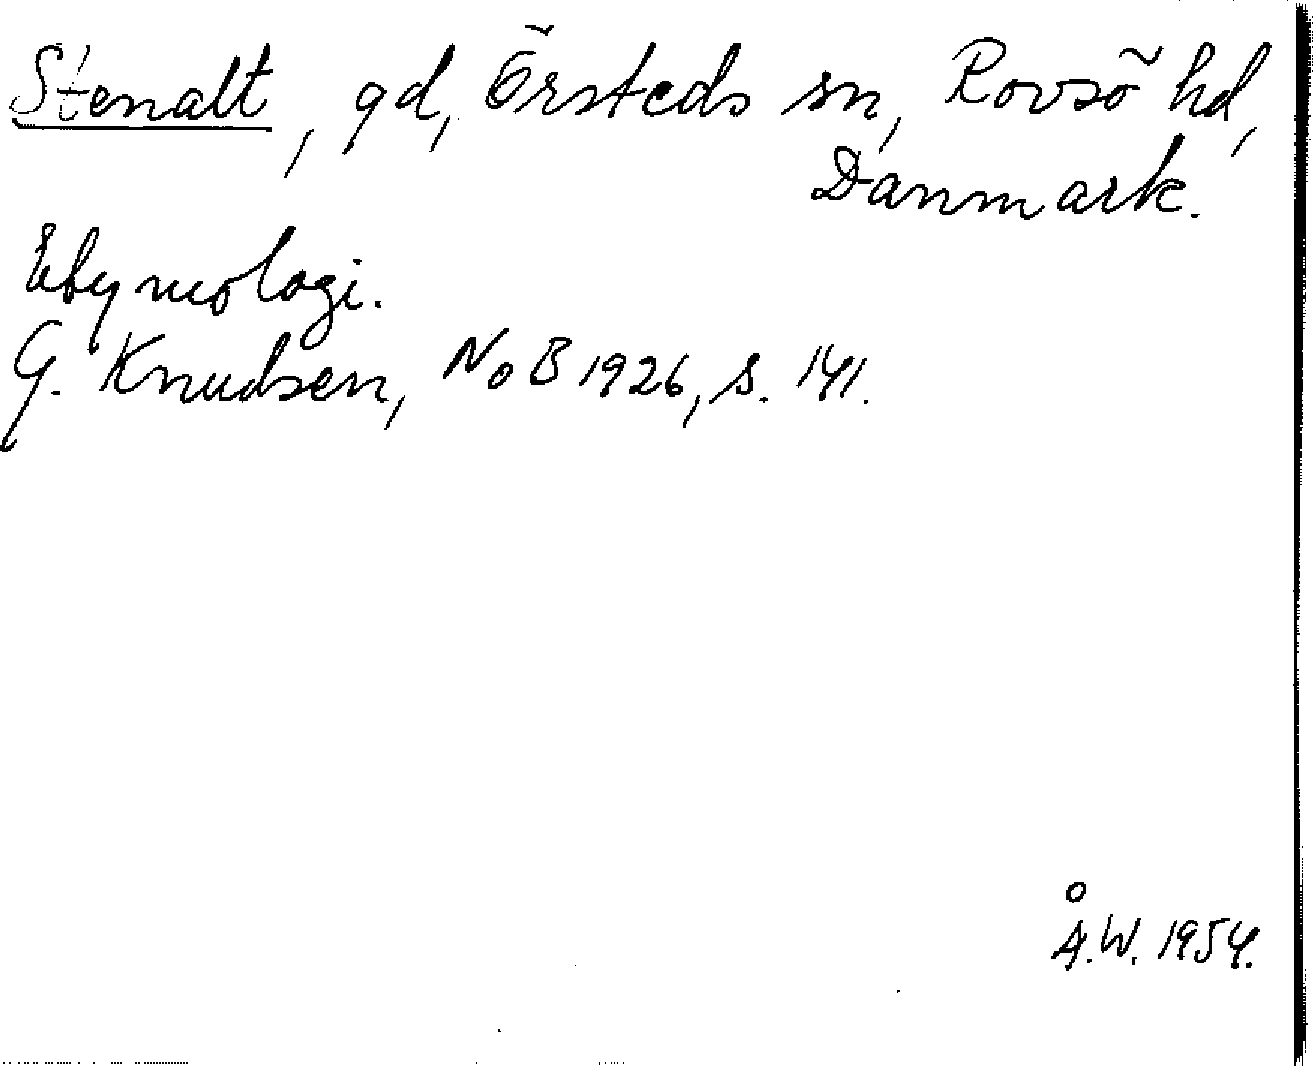 Stenalt, gd, Örsteds sn, Rovsö hd,
Danmark.
Etymologi.
G. Knudsen, NoB 1926, s. 141.
Å.W. 1954.